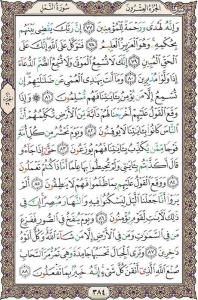 الجزء العشرون سورة النمل
وَإِنَّهُۥ لَهُدًى وَرَحْمَةٌ لِّلْمُؤْمِنِينَ ٧٧ إِنَّ رَبَّكَ يَقْضِى بَيْنَهُم
بِحُكْمِهِۦ وَهُوَ ٱلْعَزِيزُ ٱلْعَلِيمُ ٧٨ فَتَوَكَّلْ عَلَى ٱللَّهِ إِنَّكَ عَلَى
ٱلْحَقِّ ٱلْمُبِينِ ٧٩ إِنَّكَ لَا تُسْمِعُ ٱلْمَوْتَىٰ وَلَا تُسْمِعُ ٱلصُّمَّ ٱلدُّعَآءَ
إِذَا وَلَّوْا۟ مُدْبِرِينَ ٨٠ وَمَآ أَنتَ بِهَـٰدِى ٱلْعُمْىِ عَن ضَلَـٰلَتِهِمْ إِن
تُسْمِعُ إِلَّا مَن يُؤْمِنُ بِـَٔايَـٰتِنَا فَهُم مُّسْلِمُونَ ٨١
وَإِذَا وَقَعَ ٱلْقَوْلُ عَلَيْهِمْ أَخْرَجْنَا لَهُمْ دَآبَّةً مِّنَ ٱلْأَرْضِ تُكَلِّمُهُمْ أَنَّ
ٱلنَّاسَ كَانُوا۟ بِـَٔايَـٰتِنَا لَا يُوقِنُونَ ٨٢ وَيَوْمَ نَحْشُرُ مِن كُلِّ أُمَّةٍ
فَوْجًا مِّمَّن يُكَذِّبُ بِـَٔايَـٰتِنَا فَهُمْ يُوزَعُونَ ٨٣ حَتَّىٰٓ إِذَا جَآءُو
قَالَ أَكَذَّبْتُم بِـَٔايَـٰتِى وَلَمْ تُحِيطُوا۟ بِهَا عِلْمًا أَمَّاذَا كُنتُمْ تَعْمَلُونَ ٨٤
وَوَقَعَ ٱلْقَوْلُ عَلَيْهِم بِمَا ظَلَمُوا۟ فَهُمْ لَا يَنطِقُونَ ٨٥ أَلَمْ يَرَوْا۟
أَنَّا جَعَلْنَا ٱلَّيْلَ لِيَسْكُنُوا۟ فِيهِ وَٱلنَّهَارَ مُبْصِرًا إِنَّ فِى
ذَٰلِكَ لَـَٔايَـٰتٍ لِّقَوْمٍ يُؤْمِنُونَ ٨٦ وَيَوْمَ يُنفَخُ فِى ٱلصُّورِ فَفَزِعَ
مَن فِى ٱلسَّمَـٰوَٰتِ وَمَن فِى ٱلْأَرْضِ إِلَّا مَن شَآءَ ٱللَّهُ وَكُلٌّ أَتَوْهُ
دَٰخِرِينَ ٨٧ وَتَرَى ٱلْجِبَالَ تَحْسَبُهَا جَامِدَةً وَهِىَ تَمُرُّ مَرَّ ٱلسَّحَابِ
صُنْعَ ٱللَّهِ ٱلَّذِىٓ أَتْقَنَ كُلَّ شَىْءٍ إِنَّهُۥ خَبِيرٌۢ بِمَا تَفْعَلُونَ ٨٨
٣٨٤